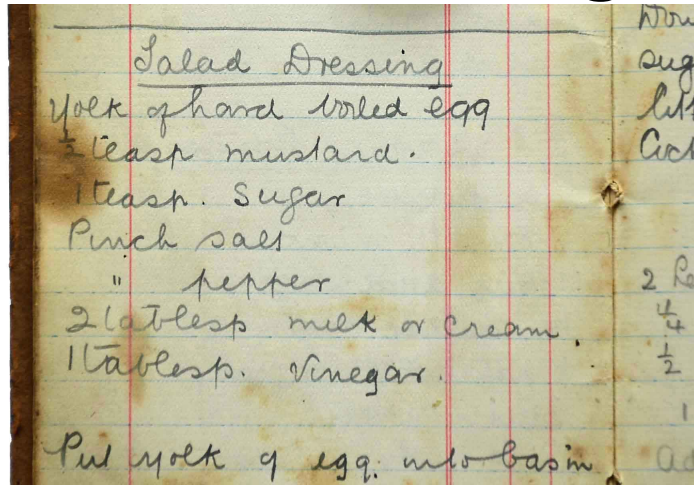 Salad Dressing
Yolk of hard boiled egg
½ teasp mustard.
1 teasp. Sugar
Pinch salt
" pepper
2 tablesp milk or cream
1 tablesp. Vinegar.
Put yolk of egg. into basin
sug
2
¼
½
1